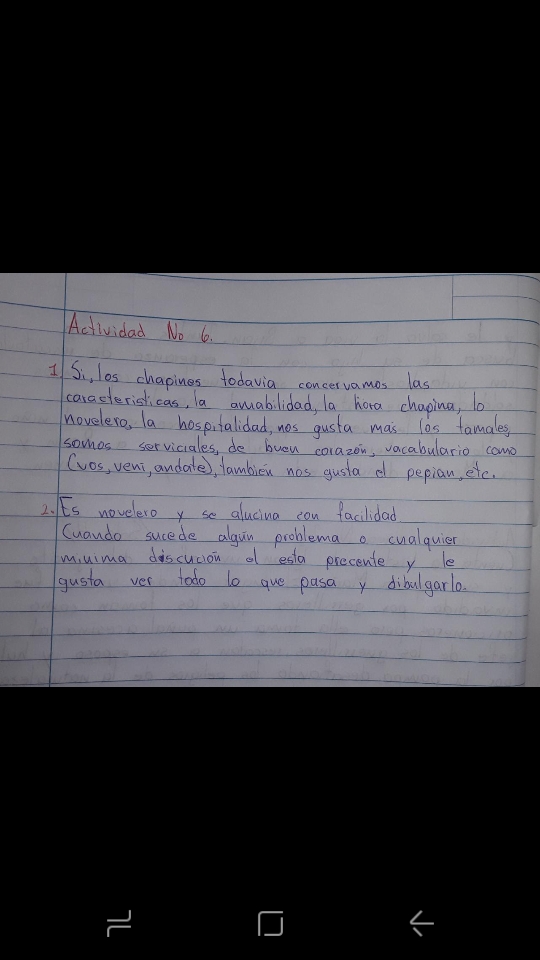 Actividad No 6.
1. Si, los chapines todavia concervamos las
caracteristicas, la amabilidad, la hora chapina, lo
novelero, la hospitalidad, nos gusta mas los tamales,
somos serviciales, de buen corazón, vacabulario como
(vos, veni, andate), también nos gusta el pepian, etc.
2. Es novelero y se alucina con facilidad
Cuando sucede algún problema o cualquier
minima discución el esta precente y le
gusta ver todo lo que pasa y dibulgarlo.